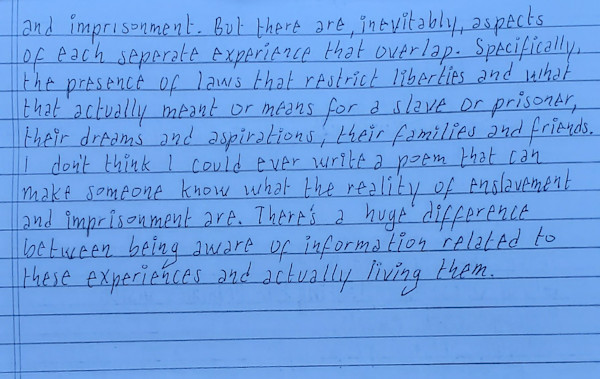 and imprisonment. But there are, inevitably, aspects
of each seperate experience that overlap. Specifically,
the presence of laws that restrict liberties and what
that actually meant or means for a slave or prisoner,
their dreams and aspirations, their families and friends.
I don't think I could ever write a poem that can
make someone know what the reality of enslavement
and imprisonment are. There's a huge difference
between being aware of information related to
these experiences and actually living them.